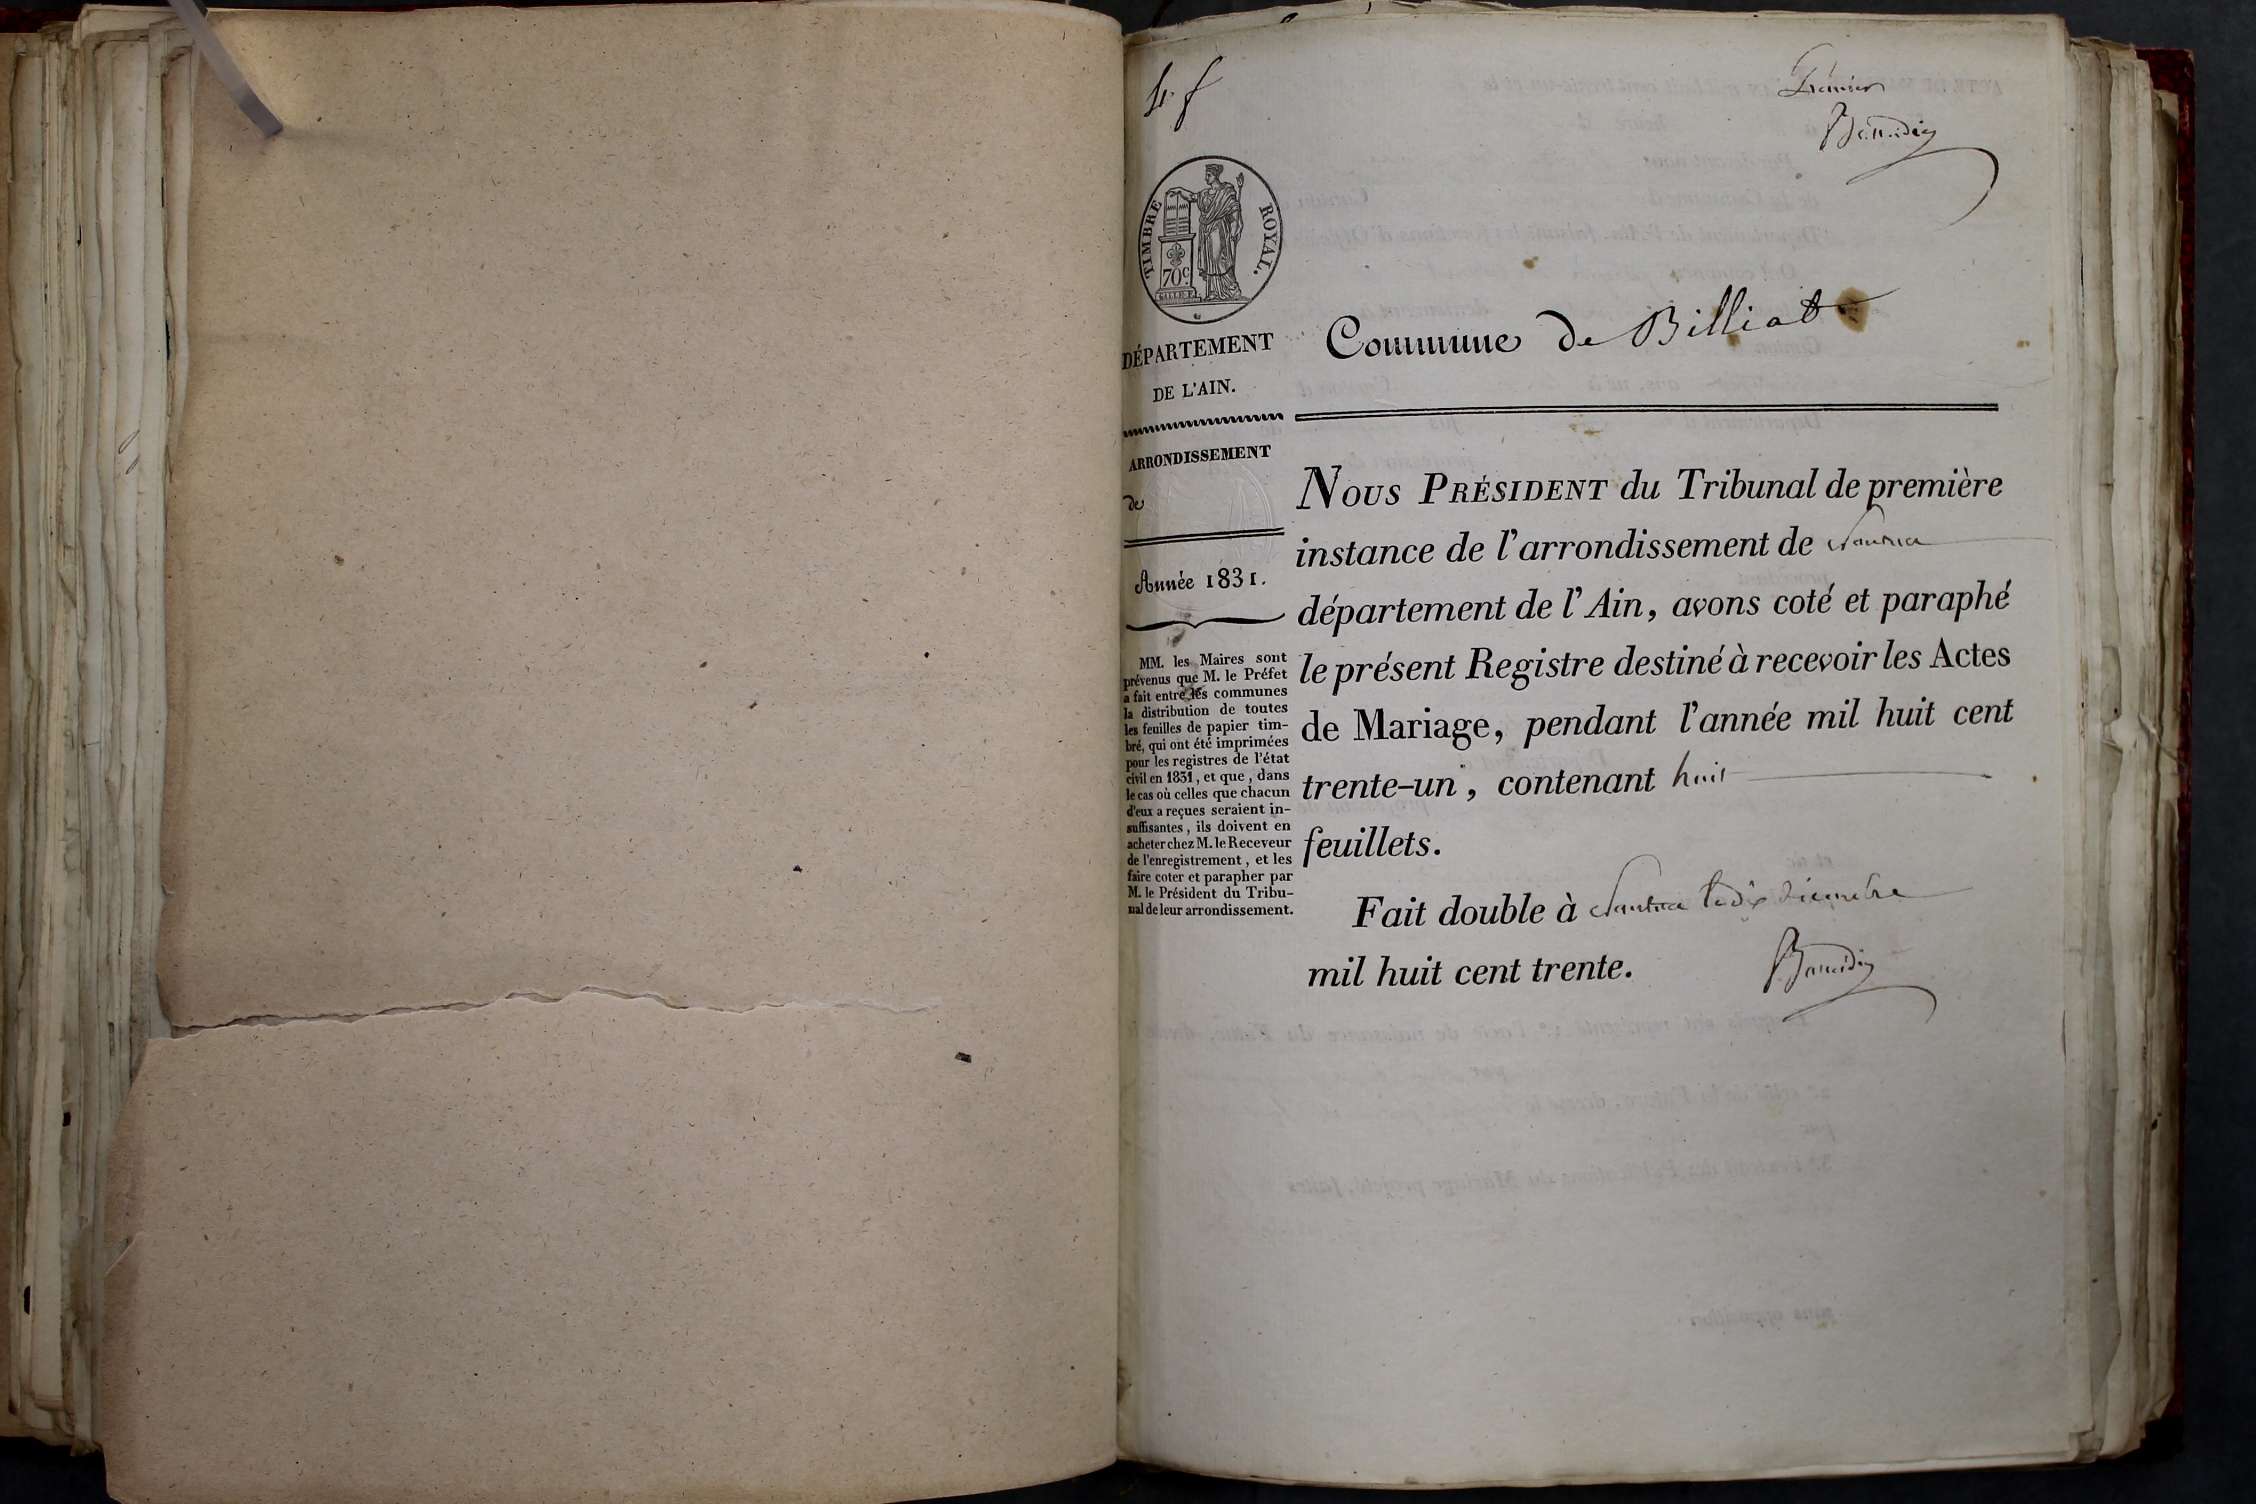 4 f
Premier
TIMBRE ROYAL.
70 c.
DÉPARTEMENT
DE L'AIN.
Commune de Billiat
ARRONDISSEMENT
de
Année 1831.
MM. les Maires sont
prévenus que M. le Préfet
a fait entre les communes
la distribution de toutes
les feuilles de papier tim-
bré, qui ont été imprimées
pour les registres de l'état
civil en 1831, et que, dans
le cas où celles que chacun
d'eux a reçues seraient in-
suffisantes, ils doivent en
acheter chez M. le Receveur
de l'enregistrement, et les
faire coter et parapher par
M. le Président du Tribu-
nal de leur arrondissement.
NOUS PRÉSIDENT du Tribunal de première
instance de l'arrondissement de Nantua
département de l'Ain, avons coté et paraphé
le présent Registre destiné à recevoir les Actes
de Mariage, pendant l'année mil huit cent
trente-un, contenant huit
feuillets.
Fait double à Nantua le dix décembre
mil huit cent trente.